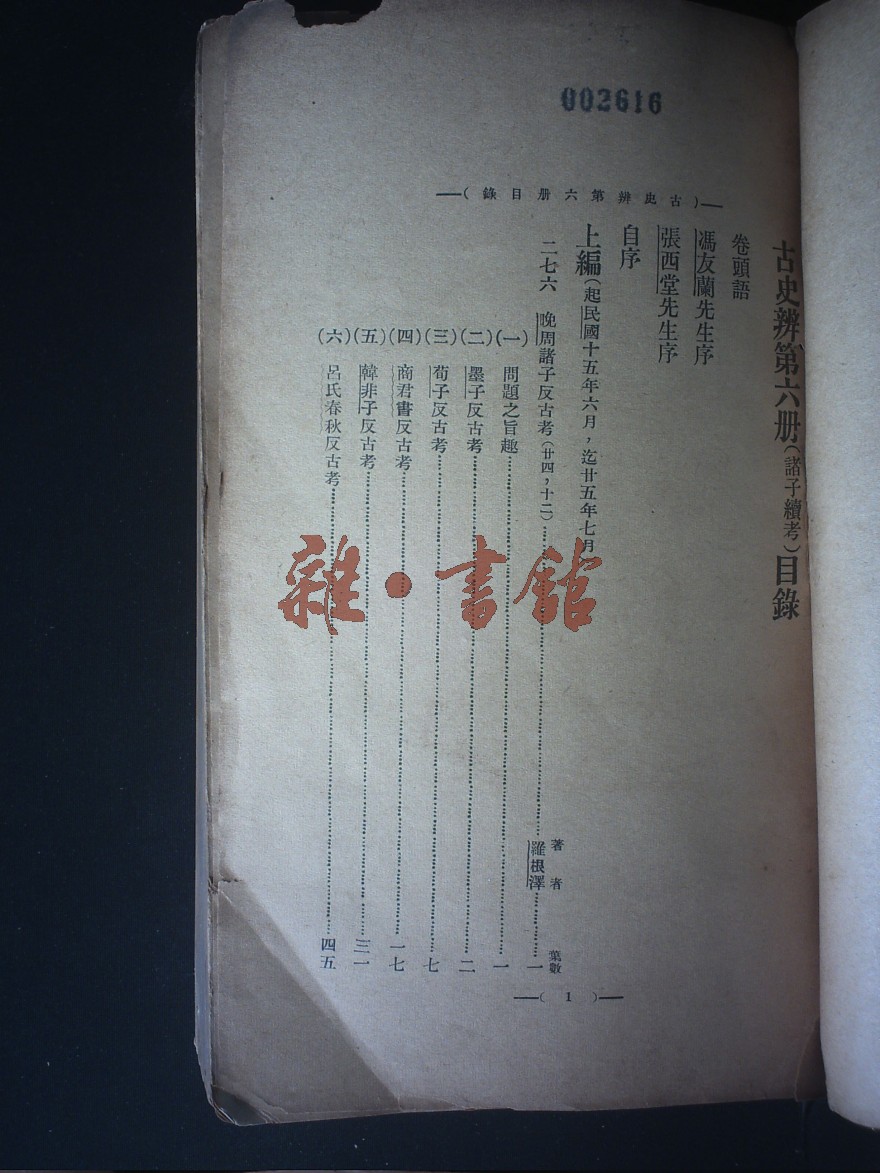 002616
——(古史辨第六册目錄)——
古史辨第六册(諸子續考)目錄
卷頭語
馮友蘭先生序
張西堂先生序
自序
上編(起民國十五年六月，迄廿五年七月
著者 葉數
二七六 晚周諸子反古考(廿四，十二)……羅根澤……一
(一)問題之旨趣……一
(二)墨子反古考……二
(三)荀子反古考……七
(四)商君書反古考……一七
(五)韓非子反古考……三一
(六)呂氏春秋反古考……四五
——( 1 )——
雜·書館